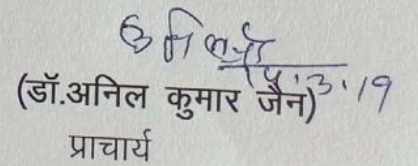 15.3.19
(डॉ.अनिल कुमार जैन)
प्राचार्य